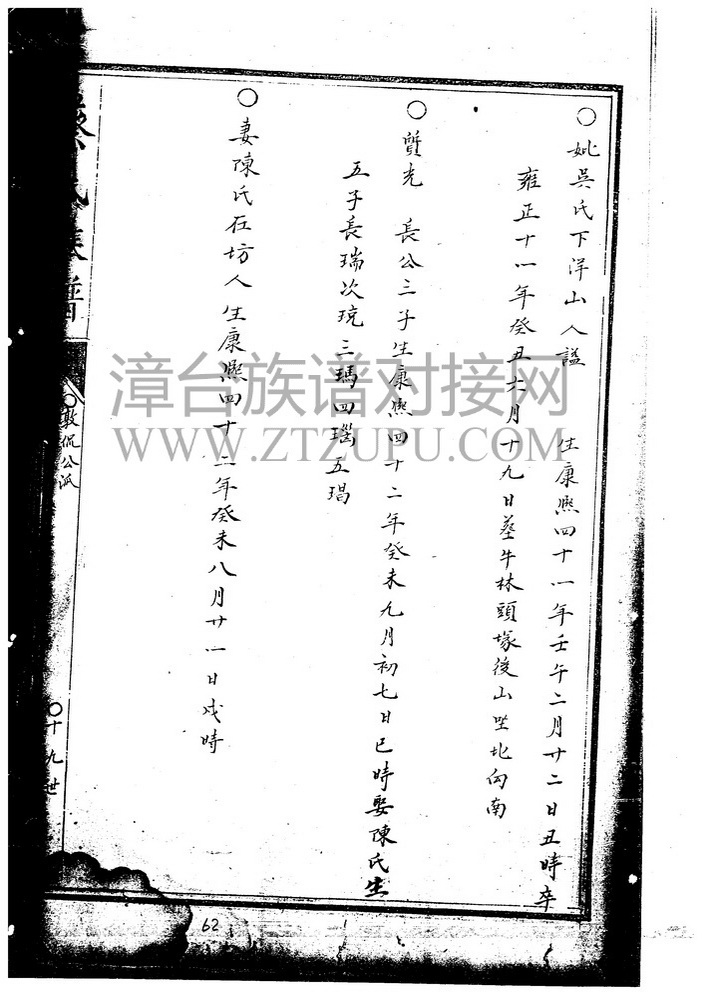 ○妣吳氏下洋山人謚 生康熙四十一年壬午二月廿二日丑時卒
雍正十一年癸丑六月十九日葬牛林頭塚後山坐北向南
○質光 長公三子生康熙四十二年癸未九月初七日巳時娶陳氏生
五子長瑞次琉三瑪四瑙五琩
○妻陳氏在坊人生康熙四十二年癸未八月廿一日戌時
氏族譜
○敦侃公派
○十九世
62
漳台族谱对接网
WWW.ZTZUPU.COM